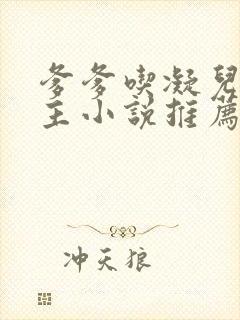 爹爹喫凝兒
主小說推薦
冲天狼